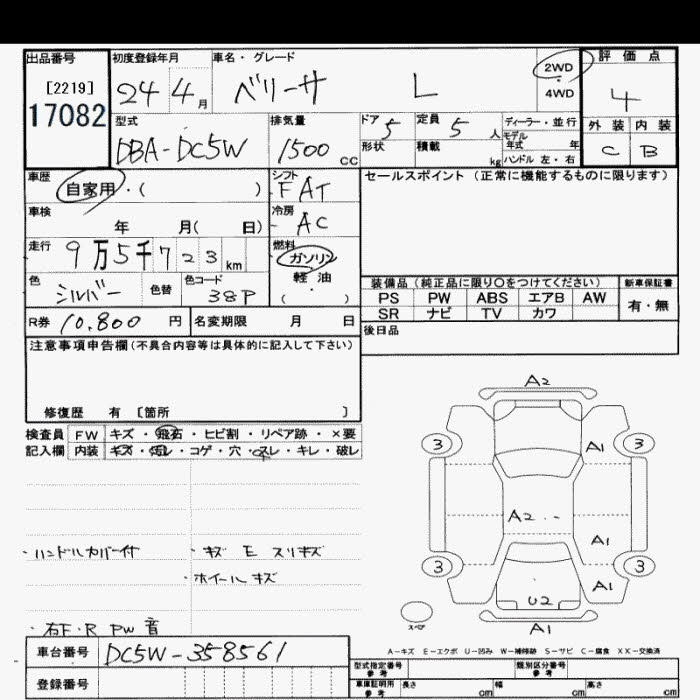 出品番号 初度登録年月 車名・グレード 評価点
[2219] 24 4月 ベリーサ L 2WD・4WD 4
17082
型式 排気量 ドア 5 定員 5人 ディーラー・並行 外装 内装
DBA-DC5W 1500 cc 形状 積載 kg モデル年式 年 C B
ハンドル 左・右
車歴 シフト セールスポイント(正常に機能するものに限ります)
自家用・( ) FAT
車検 冷房
年 月( 日) AC
走行 燃料
9万5千723km ガソリン
軽・油
( )
色 シルバー 色替 色コード 38P
装備品(純正品に限り○をつけてください) 新車保証書
PS PW ABS エアB AW 有・無
SR ナビ TV カワ
R券 10.800 円 名変期限 月 日 後日品
注意事項申告欄(不具合内容等は具体的に記入して下さい)
修復歴 有 [箇所 ]
検査員 FW キズ・飛石・ヒビ割・リペア跡・×要
記入欄 内装 キズ・汚レ・コゲ・穴・スレ・キレ・破レ
A2
3 3
A1
A2
A1
3 3
A1
U2
A1
スペア
・ハンドルカバー付 ・キズ E スリキズ
・ホイールキズ
・右F・R PW 音
A-キズ E-エクボ U-凹み W-補修跡 S-サビ C-腐食 XX-交換済
車台番号 DC5W-358561
型式指定番号 参考 類別区分番号 参考
登録番号
車庫証明用 参考 長さ cm 幅 cm 高さ cm